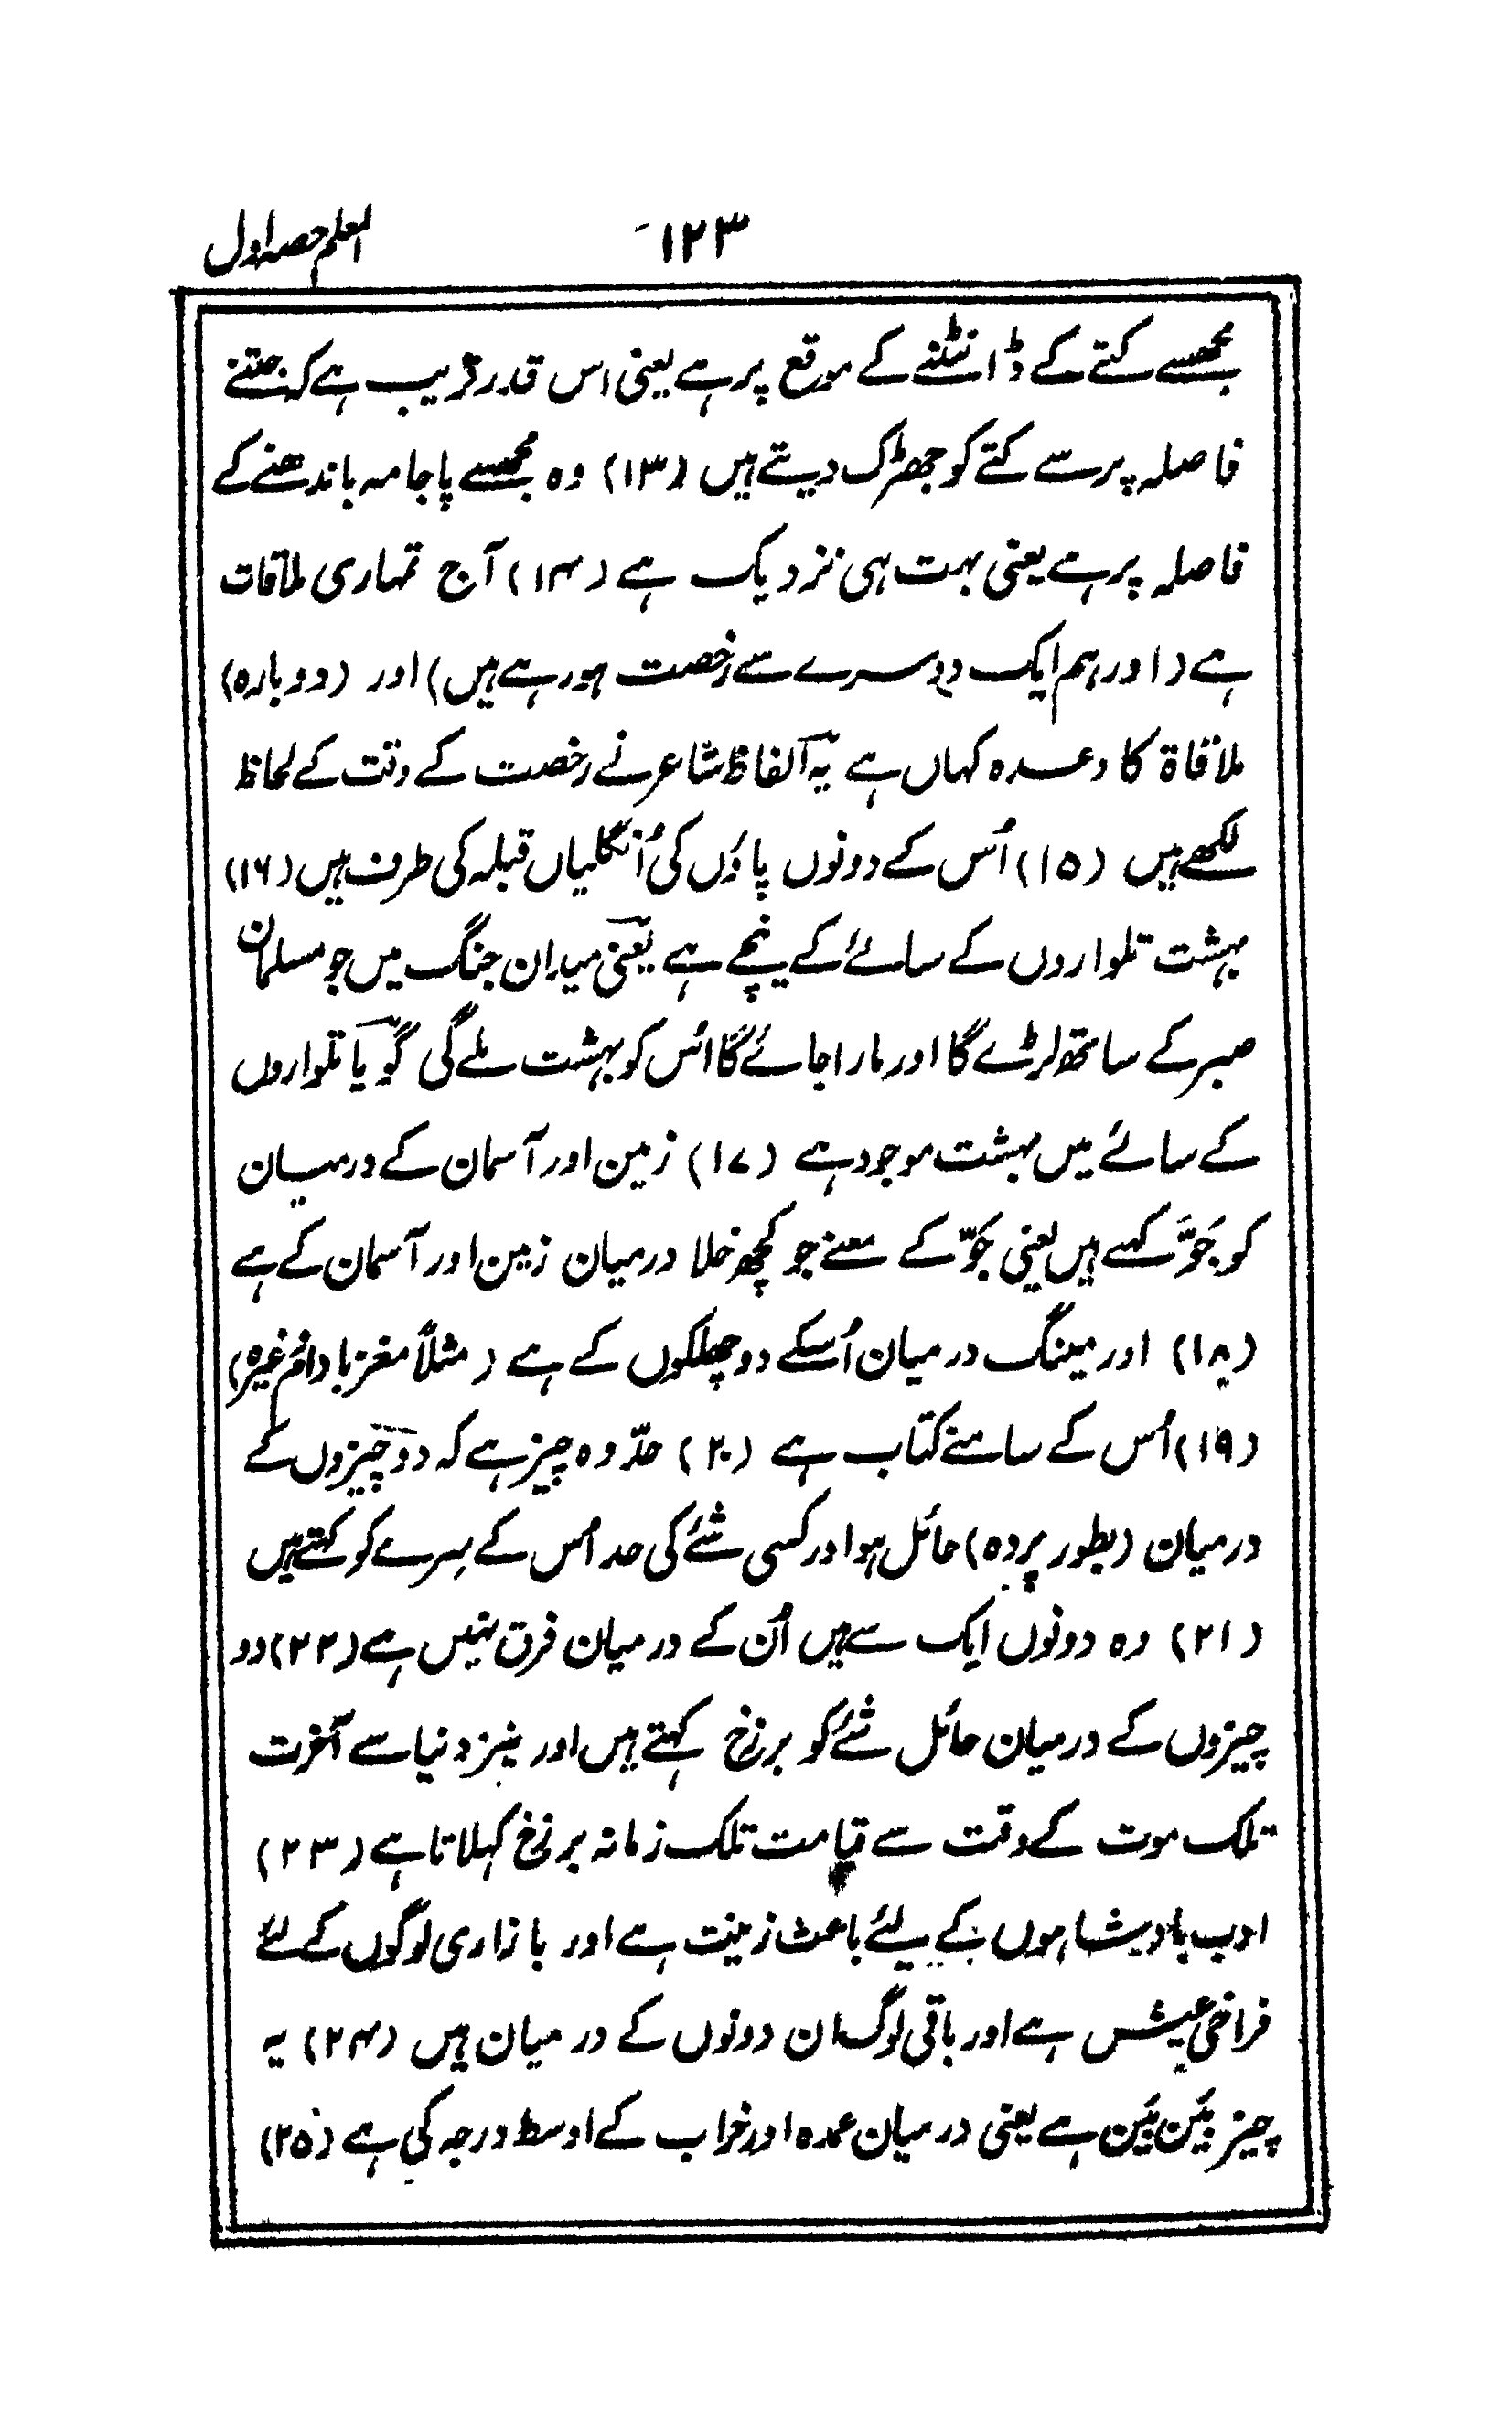 المعلم حصہ اول
۱۲۳
مجھسے کتے کے ڈانٹنے کے موقع پر ہے یعنی اس قدر قریب ہے کہ جتنے
فاصلہ پر سے کتے کو جھڑک دیتے ہیں (۱۳) وہ مجھسے پاجامہ باندھنے کے
فاصلہ پر ہے یعنی بہت ہی نزدیک ہے (۱۴) آج تمہاری ملاقات
ہے (اور ہم ایک دوسرے سے رخصت ہو رہے ہیں) اور (دوبارہ)
ملاقاۃ کا وعدہ کہاں ہے یہ الفاظ شاعر نے رخصت کے وقت کے لحاظ
لکھے ہیں (۱۵) اُس کے دونوں پاؤں کی اُنگلیاں قبلہ کی طرف ہیں (۱۶)
بہشت تلواروں کے سائے کے نیچے ہے یعنی میدان جنگ میں جو مسلمان
صبر کے ساتھ لڑے گا اور مارا جائے گا اُس کو بہشت ملے گی گویا تلواروں
کے سائے میں بہشت موجود ہے (۱۷) زمین اور آسمان کے درمیان
کو جَوّ کہتے ہیں یعنی جَوّ کے معنے جو کچھ خلا درمیان زمین اور آسمان کے ہے
(۱۸) اور مینگ درمیان اُسکے دو چھلکوں کے ہے (مثلاً مغز بادام وغیرہ)
(۱۹) اُس کے سامنے کتاب ہے (۲۰) حدّ وہ چیز ہے کہ دو چیزوں کے
درمیان (بطور پردہ) حائل ہو اور کسی شئے کی حد اُس کے سِرے کو کہتے ہیں
(۲۱) وہ دونوں ایک سے ہیں اُن کے درمیان فرق نہیں ہے (۲۲) دو
چیزوں کے درمیان حائل شئے کو برزخ کہتے ہیں اور نیز دنیا سے آخرت
تلک موت کے وقت سے قیامت تلک زمانہ برزخ کہلاتا ہے (۲۳)
ادب بادشاہوں کے لئے باعث زینت ہے اور بازاری لوگوں کے لئے
فراخی عیش ہے اور باقی لوگ ان دونوں کے درمیان ہیں (۲۴) یہ
چیز بَین بَین ہے یعنی درمیان عمدہ اور خراب کے اوسط درجہ کی ہے (۲۵)